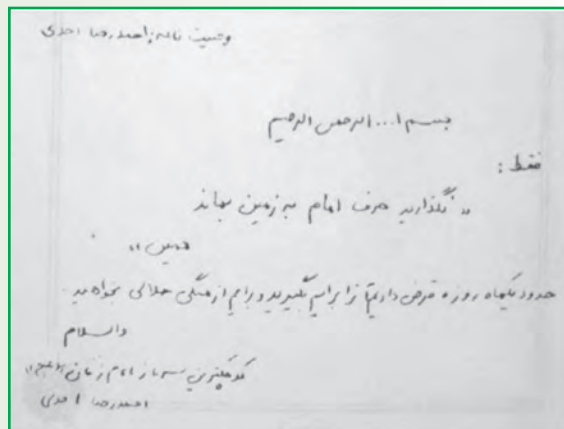 وصیت نامه احمدرضا احدی
بسم ا... الرحمن الرحیم
فقط:
«نگذارید حرف امام به زمین بماند
همین»
حدود یکماه روزه قرض دارم تا برایم بگیرید و برایم از همگی حلالی بخواهید.
والسلام
کوچکترین سرباز امام زمان (عج)
احمدرضا احدی